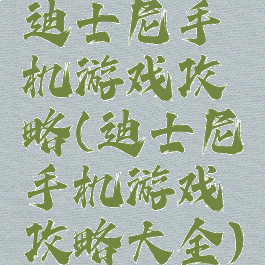 迪士尼手
机游戏攻
略(迪士尼
手机游戏
攻略大全)